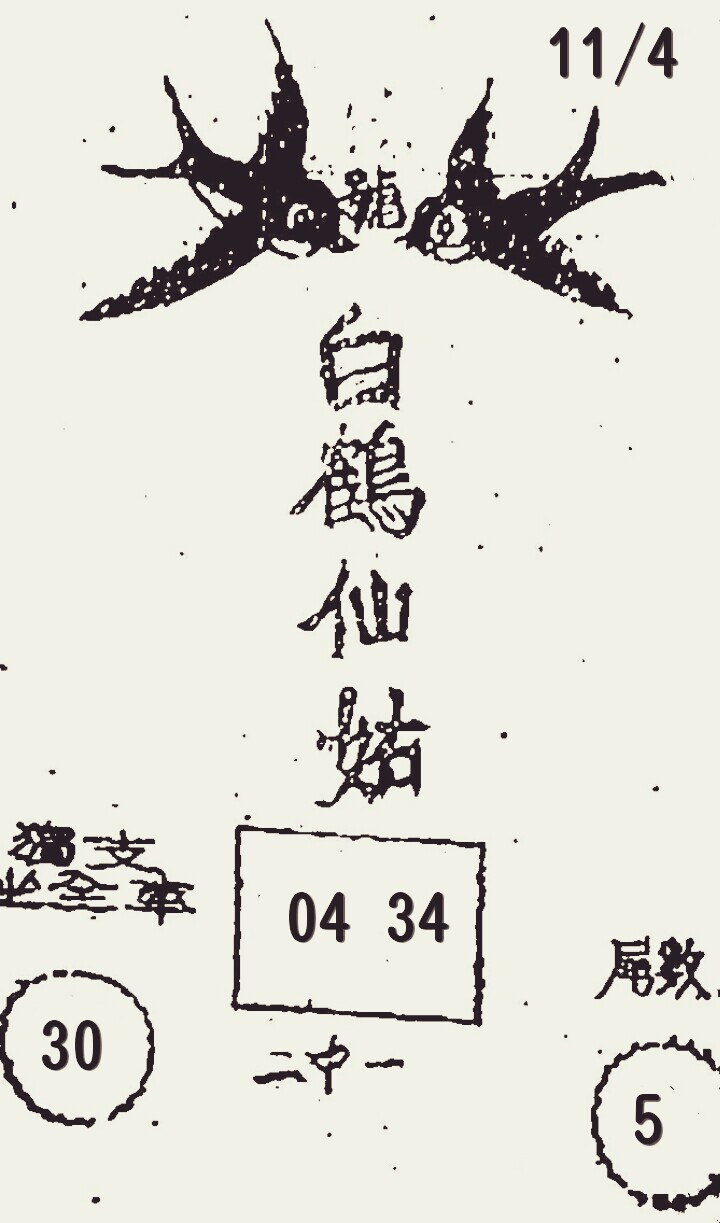 11/4
白鶴仙姑
獨支
坐全車
04 34
尾數
30
二中一
5